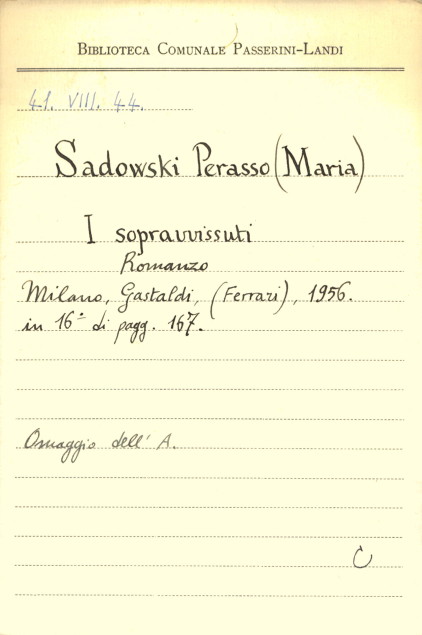 BIBLIOTECA COMUNALE PASSERINI-LANDI
41. VIII. 44.
Sadowski Perasso (Maria)
I sopravvissuti
Romanzo
Milano, Gastaldi, (Ferrari), 1956.
in 16° di pagg. 167.
Omaggio dell' A.
C